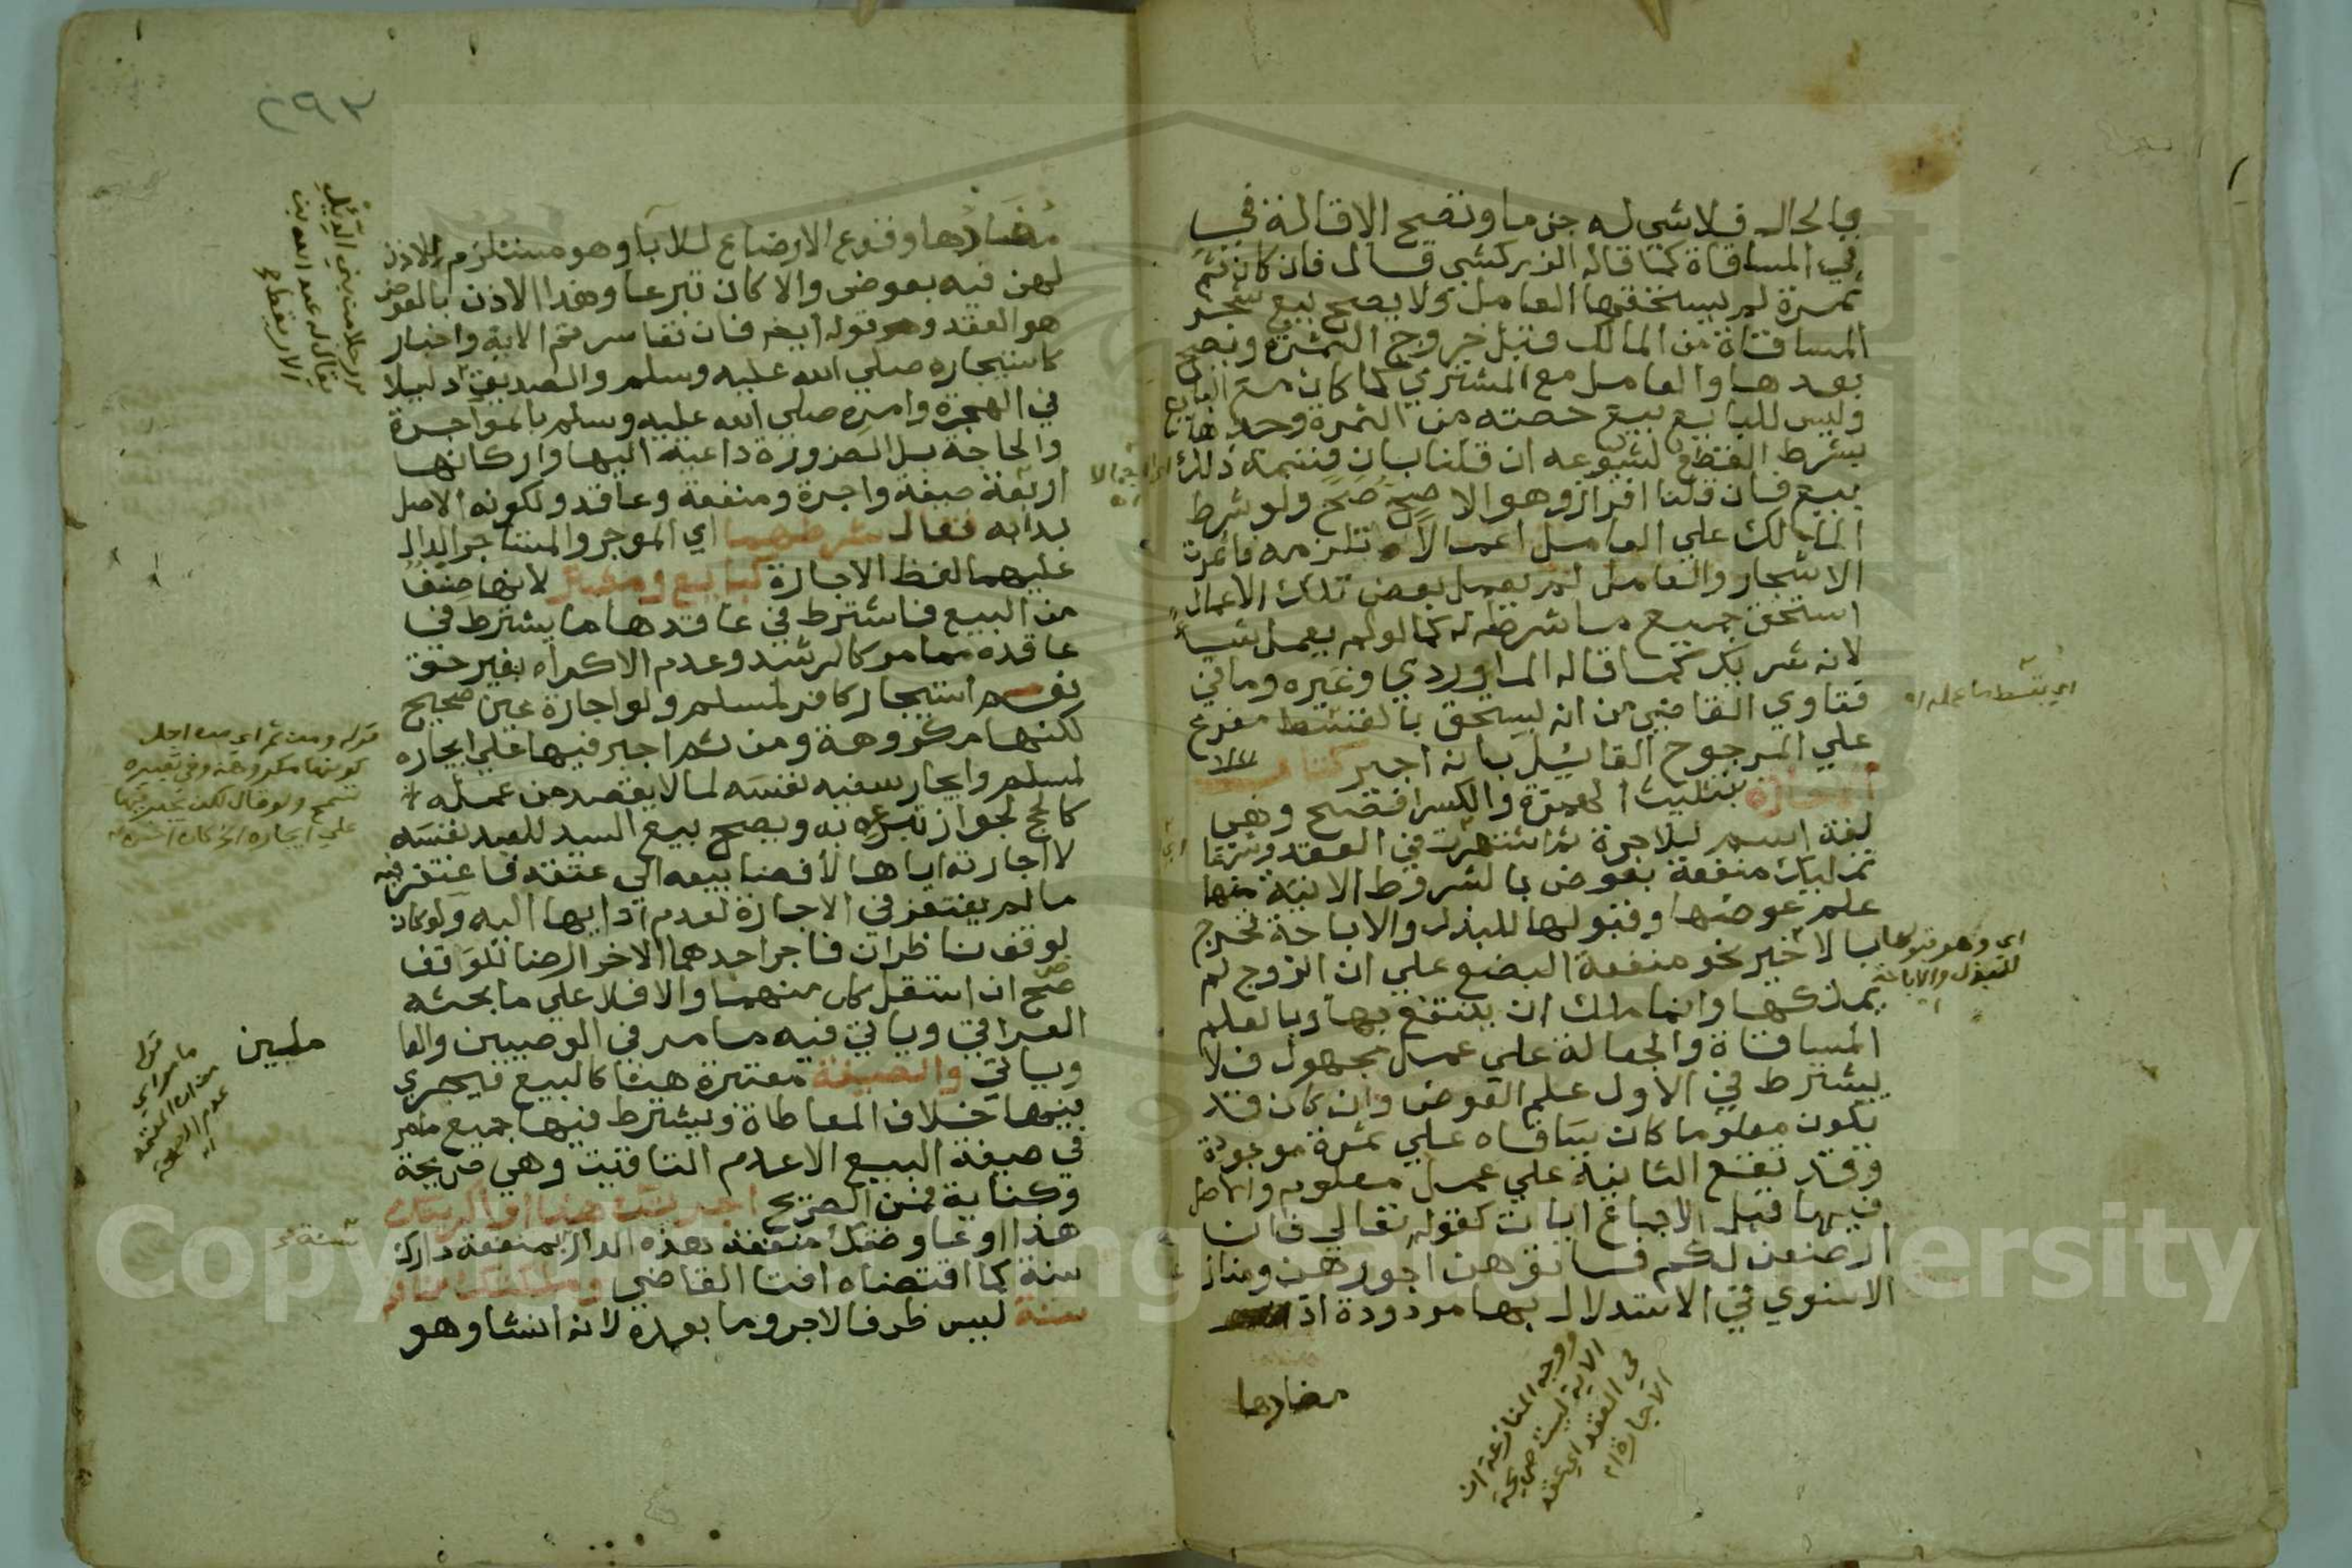 بالحال فلا شي له جزما وتصح الاقالة في
في المساقاة كما قاله الزركشي قال فان كان ثم
ثمرة لم يستحقها العامل ولا يصح بيع شجر
المساقاة من المالك قبل خروج الثمرة ويصح
بعدها والعامل مع المشتري كما كان مع البايع
وليس للبايع بيع حصته من الثمرة وحدها
بشرط القطع لشيوعه ان قلنا بان قسمة ذلك
بيع فان قلنا افراز وهو الاصح صح ولو شرط
المالك علي العامل اعمالا تلزمه فاثمرت
الاشجار والعامل لم يعمل بعض تلك الاعمال
استحق جميع ما شرط له كما لو لم يعمل شيا
لانه شريك كما قاله الماوردي وغيره وما في
فتاوي القاضي من انه يستحق بالقسط مفرع
علي المرجوح القائل بانه اجير كتاب
الاجارة بتثليث الهمزة والكسر افصح وهي
لغة اسم للاجرة ثم اشتهرت في العقد وشرعا
تمليك منفعة بعوض بالشروط الاتية منها
علم عوضها وقبولها للبذل والاباحة تخرج
بالاخير نحو منفعة البضع علي ان الزوج لم
يملكها وانما ملك ان ينتفع بها وبالعلم
المساقاة والجعالة علي عمل مجهول فلا
يشترط في الاول علم العوض وان كان قد
يكون معلوما كان ساقاه علي ثمرة موجودة
وقد تقع الثانية علي عمل معلوم والاصل
فيها قبل الاجماع ايات كقوله تعالي فان
ارضعن لكم فاتوهن اجورهن ومناز
الاسنوي في الاستدلال بها مردودة اذ
مضارها
اي بقسط ما عمله اه
اي وهو قبولها
للبذل والاباحة
ووجه المنازعة ان
الاية ليست صريحة
في العقد اي عقد
الاجارة اه
٢٩٣
مضارها وقوع الارضاع للابا وهو مستلزم للاذن
لهن فيه بعوض والا كان تبرعا وهذا الاذن بالعوض
هو العقد وقوله ايضا فان تعاسرتم الاية واخبار
كاستيجاره صلي الله عليه وسلم والصديق دليلا
في الهجرة وامره صلي الله عليه وسلم بالمؤاجرة
والحاجة بل الضرورة داعية اليها واركانها
اربعة صيغة واجرة ومنفعة وعاقد ولكونه الاصل
بدا به فقال شرطهما اي الموجر والمستاجر الدال
عليهما لفظ الاجارة كبايع ومشتر لانها صنف
من البيع فاشترط في عاقدها ما يشترط في
عاقده مما مر كالرشد وعدم الاكراه بغير حق
نعم استيجار كافر لمسلم ولو اجارة عين صحيح
لكنها مكروهة ومن ثم اجبر فيها علي ايجاره
لمسلم وايجار سفيه نفسه لما لا يقصد من عمله
كالحج لجواز تبرعه به ويصح بيع السيد للعبد نفسه
لا اجارته اياها لافضا بيعه الي عتقه فاغتفر فيه
ما لم يغتفر في الاجارة لعدم ادايها اليه ولو كان
لوقف ناظران فاجر احدهما الاخر ارضا للوقف
صح ان استقل كل منهما والا فلا علي ما بحثه
العراقي وياتي فيه ما مر في الوصيين والفا
وياتي والصيغة معتبرة هنا كالبيع فيجري
فيها خلاف المعاطاة ويشترط فيها جميع ما مر
في صيغة البيع الا عدم التاقيت وهي صريحة
وكناية فمن الصريح اجرتك هذا او اكريتك
هذا او عاوضتك منفعة هذه الدار بمنفعة دارك
سنة كما اقتضاه افتا القاضي وملكتك منافعه
سنة ليس ظرفا لاجر وما بعده لانه انشا وهو
رجلا من بني الديل
يقال له عبد الله بن
الاريقط
قوله ومن ثم اي من اجل
كونها مكروهة وفي تعبيره
تسمح ولو قال لكن يجبر فيها
علي ايجاره الخ كان احسن
ملبين
قوله
ما مر اي
من ان المعتمد
عدم الصحة
اه